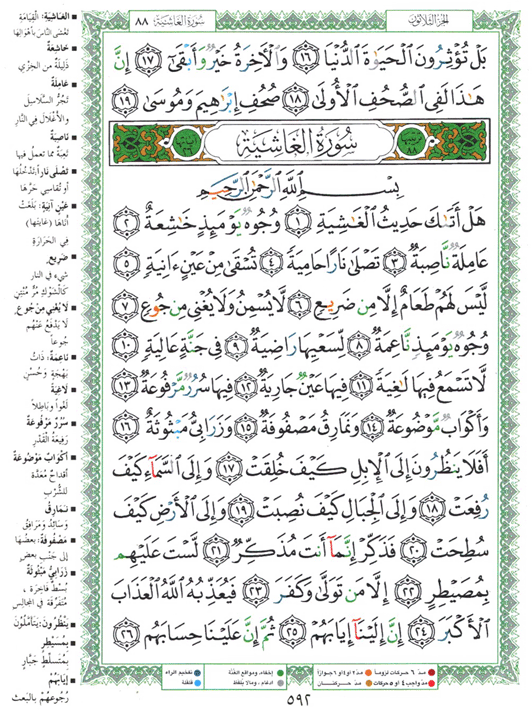 الجزء الثلاثون
سورة الغاشية ٨٨
بَلْ تُؤْثِرُونَ الْحَيَوٰةَ الدُّنْيَا ۝١٦ وَالْآخِرَةُ خَيْرٌ وَأَبْقَىٰ ۝١٧ إِنَّ
هَٰذَا لَفِي الصُّحُفِ الْأُولَىٰ ۝١٨ صُحُفِ إِبْرَاهِيمَ وَمُوسَىٰ ۝١٩
سُورَةُ الْغَاشِيَةِ
بِسْمِ اللَّهِ الرَّحْمَٰنِ الرَّحِيمِ
هَلْ أَتَىٰكَ حَدِيثُ الْغَٰشِيَةِ ۝١ وُجُوهٌ يَوْمَئِذٍ خَٰشِعَةٌ ۝٢
عَامِلَةٌ نَّاصِبَةٌ ۝٣ تَصْلَىٰ نَارًا حَامِيَةً ۝٤ تُسْقَىٰ مِنْ عَيْنٍ ءَانِيَةٍ ۝٥
لَّيْسَ لَهُمْ طَعَامٌ إِلَّا مِن ضَرِيعٍ ۝٦ لَّا يُسْمِنُ وَلَا يُغْنِي مِن جُوعٍ ۝٧
وُجُوهٌ يَوْمَئِذٍ نَّاعِمَةٌ ۝٨ لِّسَعْيِهَا رَاضِيَةٌ ۝٩ فِي جَنَّةٍ عَالِيَةٍ ۝١٠
لَّا تَسْمَعُ فِيهَا لَٰغِيَةً ۝١١ فِيهَا عَيْنٌ جَارِيَةٌ ۝١٢ فِيهَا سُرُرٌ مَّرْفُوعَةٌ ۝١٣
وَأَكْوَابٌ مَّوْضُوعَةٌ ۝١٤ وَنَمَارِقُ مَصْفُوفَةٌ ۝١٥ وَزَرَابِيُّ مَبْثُوثَةٌ ۝١٦
أَفَلَا يَنظُرُونَ إِلَى الْإِبِلِ كَيْفَ خُلِقَتْ ۝١٧ وَإِلَى السَّمَآءِ كَيْفَ
رُفِعَتْ ۝١٨ وَإِلَى الْجِبَالِ كَيْفَ نُصِبَتْ ۝١٩ وَإِلَى الْأَرْضِ كَيْفَ
سُطِحَتْ ۝٢٠ فَذَكِّرْ إِنَّمَآ أَنتَ مُذَكِّرٌ ۝٢١ لَّسْتَ عَلَيْهِم
بِمُصَيْطِرٍ ۝٢٢ إِلَّا مَن تَوَلَّىٰ وَكَفَرَ ۝٢٣ فَيُعَذِّبُهُ اللَّهُ الْعَذَابَ
الْأَكْبَرَ ۝٢٤ إِنَّ إِلَيْنَآ إِيَابَهُمْ ۝٢٥ ثُمَّ إِنَّ عَلَيْنَا حِسَابَهُم ۝٢٦
الغاشية: القيامة
تغشى الناس بأهوالها
خاشعة
ذليلة من الخزي
عاملة
تجر السلاسل
والأغلال في النار
ناصبة
تعبة مما تعمل فيها
تصلى نارا: تدخلها
أو تقاسي حرها
عين آنية: بلغت
أناها (غايتها)
في الحرارة
ضريع
شيء في النار
كالشوك مر منتن
لا يغني من جوع
لا يدفع عنهم
جوعا
ناعمة: ذات
بهجة وحسن
لاغية
لغوا وباطلا
سرر مرفوعة
رفيعة القدر
أكواب موضوعة
أقداح معدة
للشرب
نمارق
وسائد ومرافق
مصفوفة: بعضها
إلى جنب بعض
زرابي مبثوثة
بسط فاخرة،
متفرقة في المجالس
ينظرون: يتأملون
بمسيطر
بمتسلط جبار
إيابهم
رجوعهم بالبعث
مد ٦ حركات لزوما
مد ٢ أو ٤ أو ٦ جوازا
إخفاء، ومواقع الغنة
تفخيم الراء
مد واجب ٤ أو ٥ حركات
مد حركتان
ادغام، وما لا يلفظ
قلقلة
٥٩٢